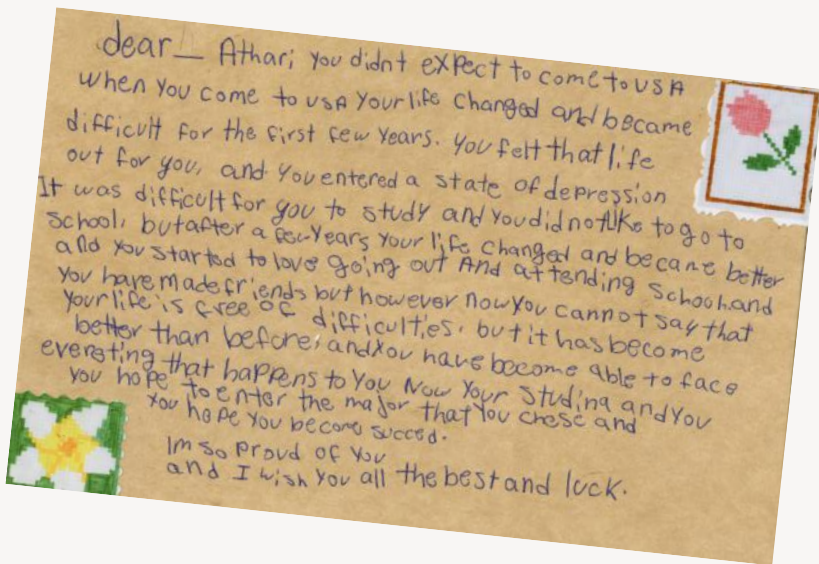 dear_ Athari you didnt expect to come to USA
when you come to USA your life changed and became
difficult for the first few years. you felt that life
out for you, and you entered a state of depression
It was difficult for you to study and you did not like to go to
school, but after a few years your life changed and became better
and you started to love going out And attending school.and
you have made friends but however now you cannot say that
your life is free of difficulties, but it has become
better than before, and you have become able to face
evereting that happens to you Now your studing and you
you hope to enter the major that you chose and
you hope you become succed.
Im so proud of you
and I wish you all the best and luck.